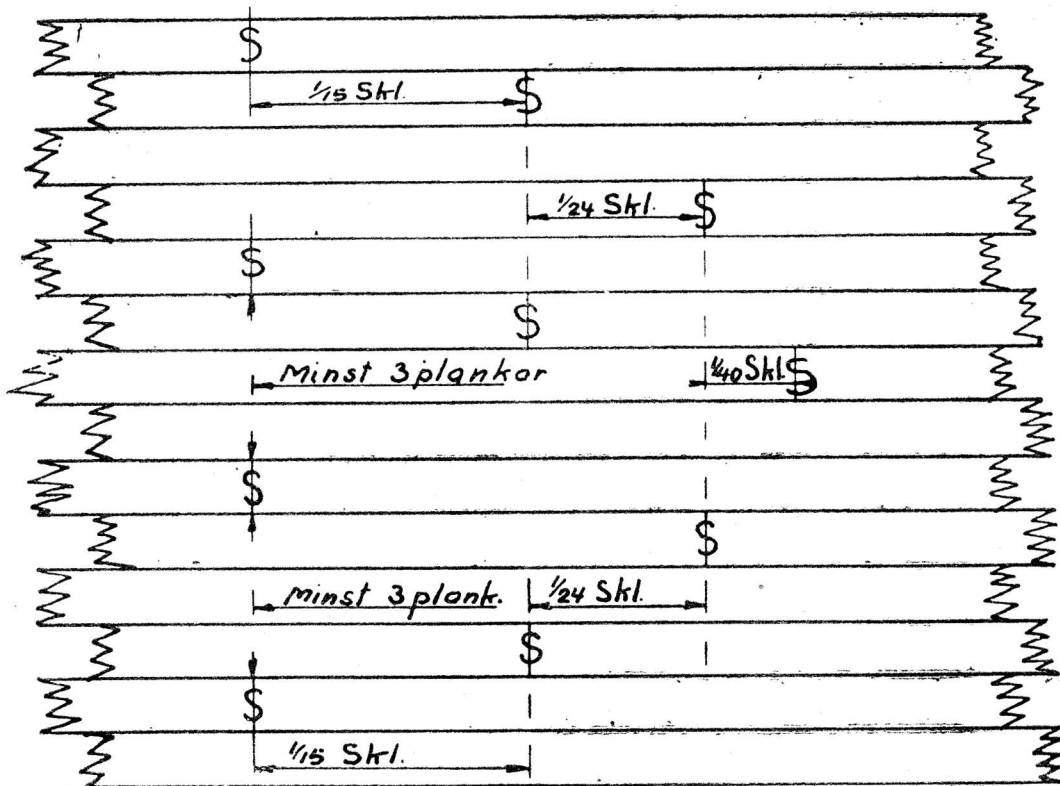 S
1/15 Skl. S
1/24 Skl. S
S
S
Minst 3 plankor 1/40 Skl. S
S
S
Minst 3 plank. 1/24 Skl.
S
S
1/15 Skl.